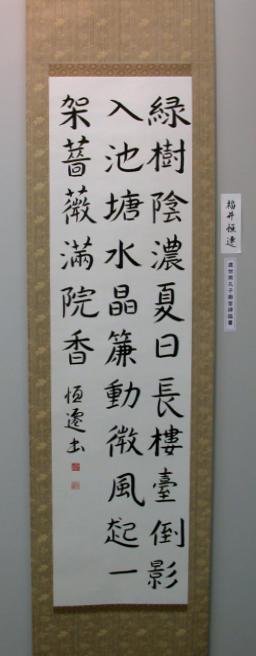 緑樹陰濃夏日長樓臺倒影
入池塘水晶簾動微風起一
架薔薇滿院香 恒遷书